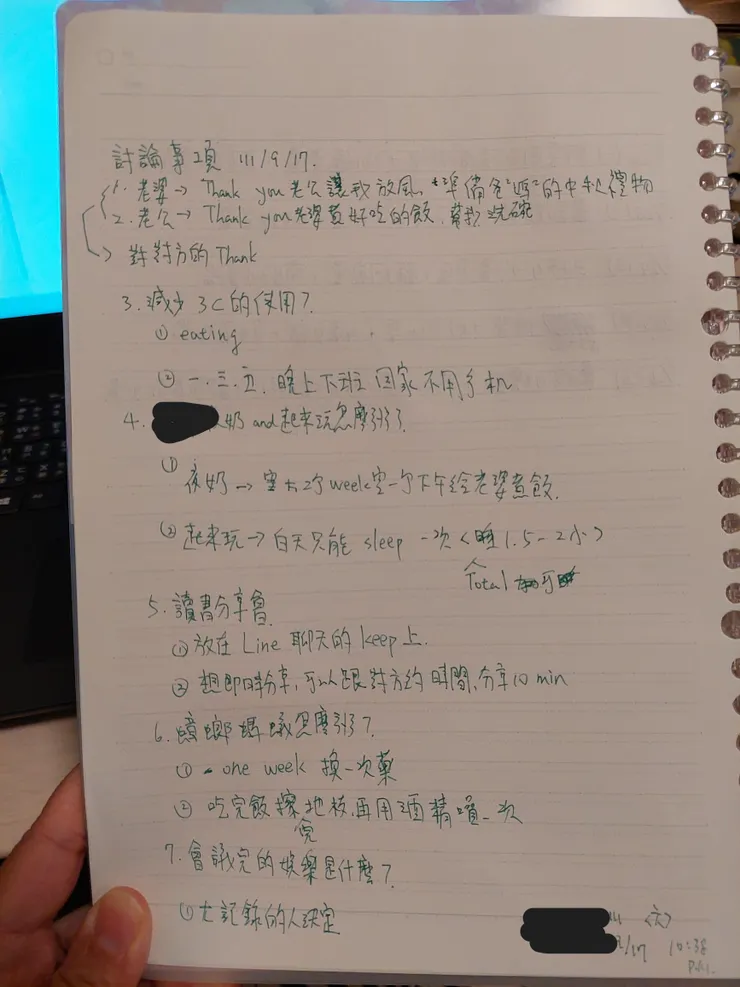 討論事項 111/9/17.
1. 老婆→ Thank you老公讓我放風, 準備爸媽的中秋禮物
2. 老公→ Thank you老婆煮好吃的飯、幫忙洗碗
對對方的Thank
3. 減少 3C的使用?
① eating
② 一.三.五. 晚上下班回家不用手机
4. 奶and起來玩怎麼辦?
① 夜奶→ week 一个下午給老婆煮飯.
② 起來玩→白天只能 sleep 一次<睡1.5-2小>
Total
5. 讀書分享會
① 放在 Line 聊天的 keep上.
② 想即時分享, 可以跟對方約時間,分享10 min
6. 蟑螂螞蟻怎麼辦?
① one week 換一次藥
② 吃完飯擦地板,再用酒精噴一次
7. 會議完的娛樂是什麼?
① 記錄的人決定
<六>
/17 10:38
P.M.